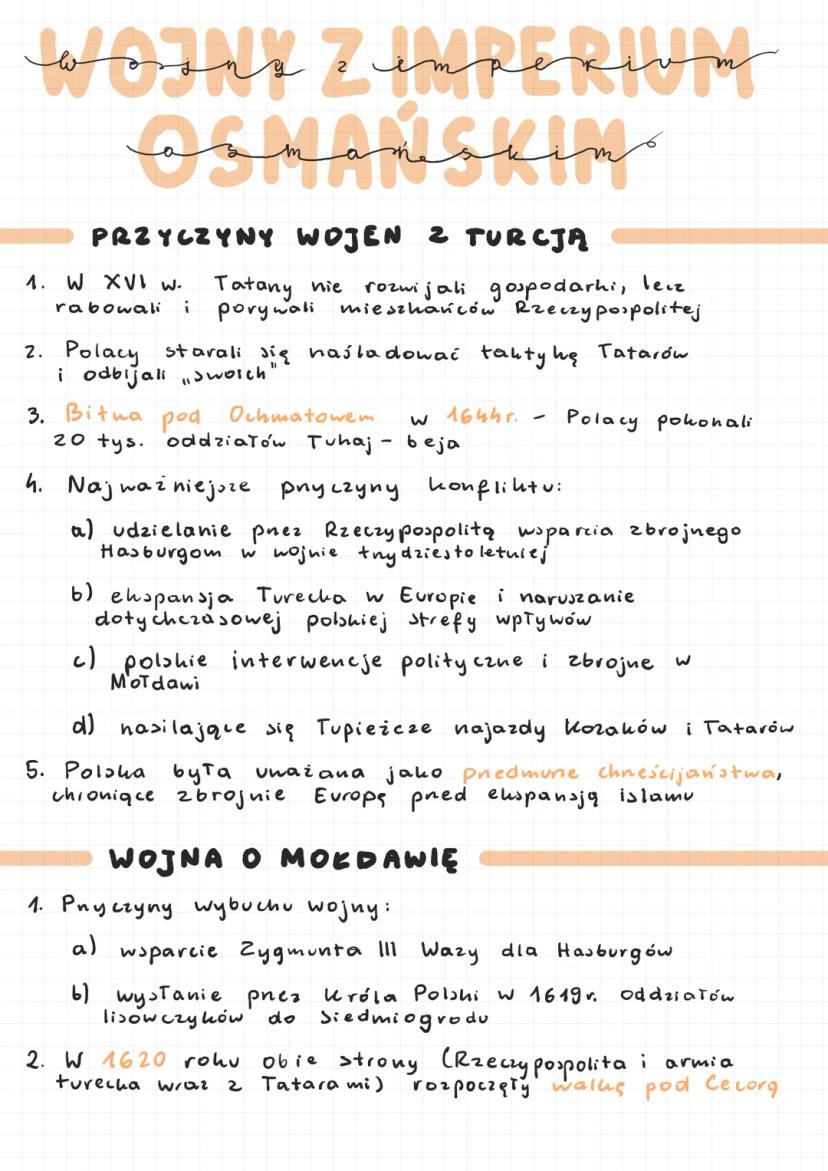 WOJNY Z IMPERIUM
OSMAŃSKIM
PRZYCZYNY WOJEN Z TURCJĄ
1. W XVI w. Tatarzy nie rozwijali gospodarki, lecz
rabowali i porywali mieszkańców Rzeczypospolitej
2. Polacy starali się naśladować taktykę Tatarów
i odbijali „swoich"
3. Bitwa pod Ochmatowem w 1644r. - Polacy pokonali
20 tys. oddziałów Tuhaj-beja
4. Najważniejsze przyczyny konfliktu:
a) udzielanie przez Rzeczypospolitą wsparcia zbrojnego
Hasburgom w wojnie trzydziestoletniej
b) ekspansja Turecka w Europie i naruszanie
dotychczasowej polskiej strefy wpływów
c) polskie interwencje polityczne i zbrojne w
Mołdawi
d) nasilające się łupieżcze najazdy Kozaków i Tatarów
5. Polska była uważana jako przedmurze chrześcijaństwa,
chroniące zbrojnie Europę przed ekspansją islamu
WOJNA O MOŁDAWIĘ
1. Przyczyny wybuchu wojny:
a) wsparcie Zygmunta III Wazy dla Hasburgów
b) wysłanie przez króla Polski w 1619r. oddziałów
lisowczyków do Siedmiogrodu
2. W 1620 roku obie strony (Rzeczypospolita i armia
turecka wraz z Tatarami) rozpoczęły walkę pod Cecorą